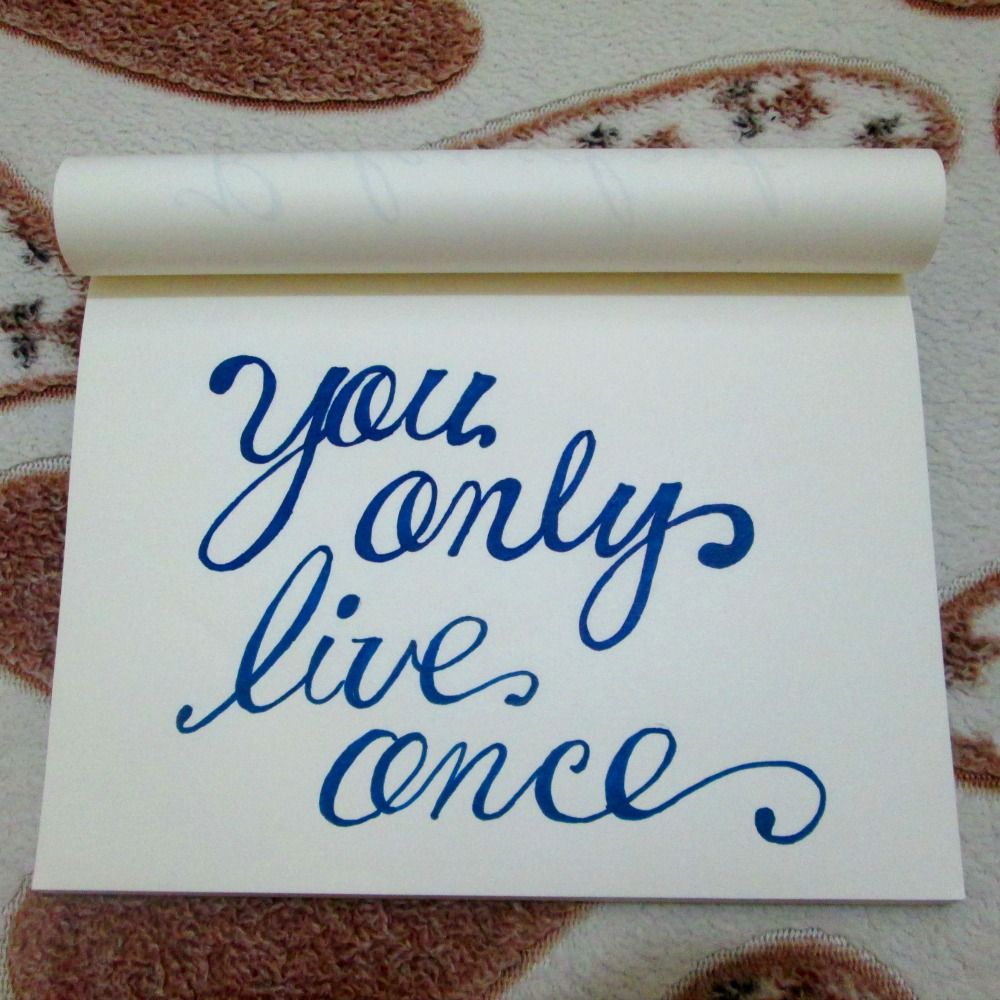 you
only
live
once